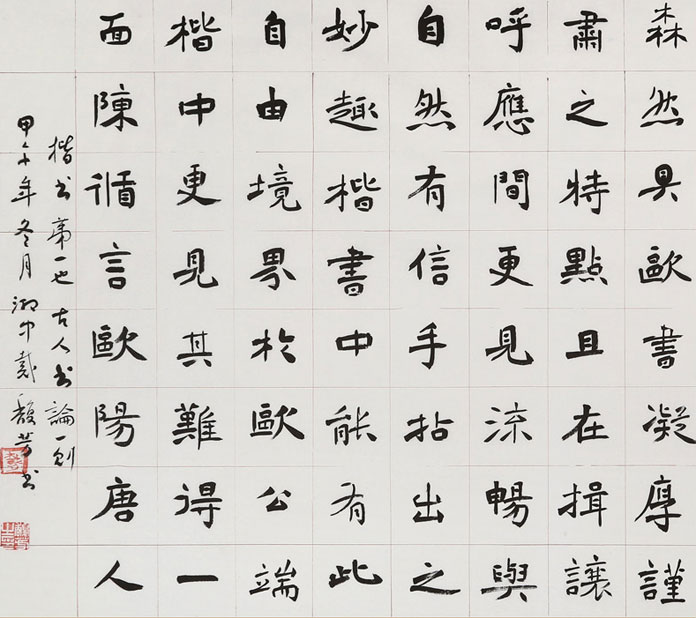 森然具歐書凝厚謹
肅之特點且在揖讓
呼應間更見流暢與
自然有信手拈出之
妙趣楷書中能有此
自由境界於歐公端
楷中更見其難得一
面陳循言歐陽唐人
楷书第一也 古人书論一則
甲午年冬月 湖中戴馥芳书